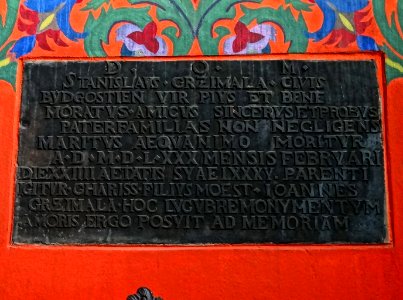 D. O. M.
STANISLAVS · GRZIMALA · CIVIS
BVDGOSTIEN VIR PIVS ET BENE
MORATVS · AMICVS SINCERVS ET PROBVS
PATERFAMILIAS NON NEGLIGENS
MARITVS AEQVANIMO MORITVR
A · D · M · D · L · XXX MENSIS FEBRVARI
DIE XXIIII AETATIS SVAE LXXXV · PARENTI
IGITVR · CHARISS · FILIVS MOEST · IOANNES
GRZIMALA · HOC LVGVBRE MONVMENTVM
AMORIS ERGO POSVIT AD MEMORIAM